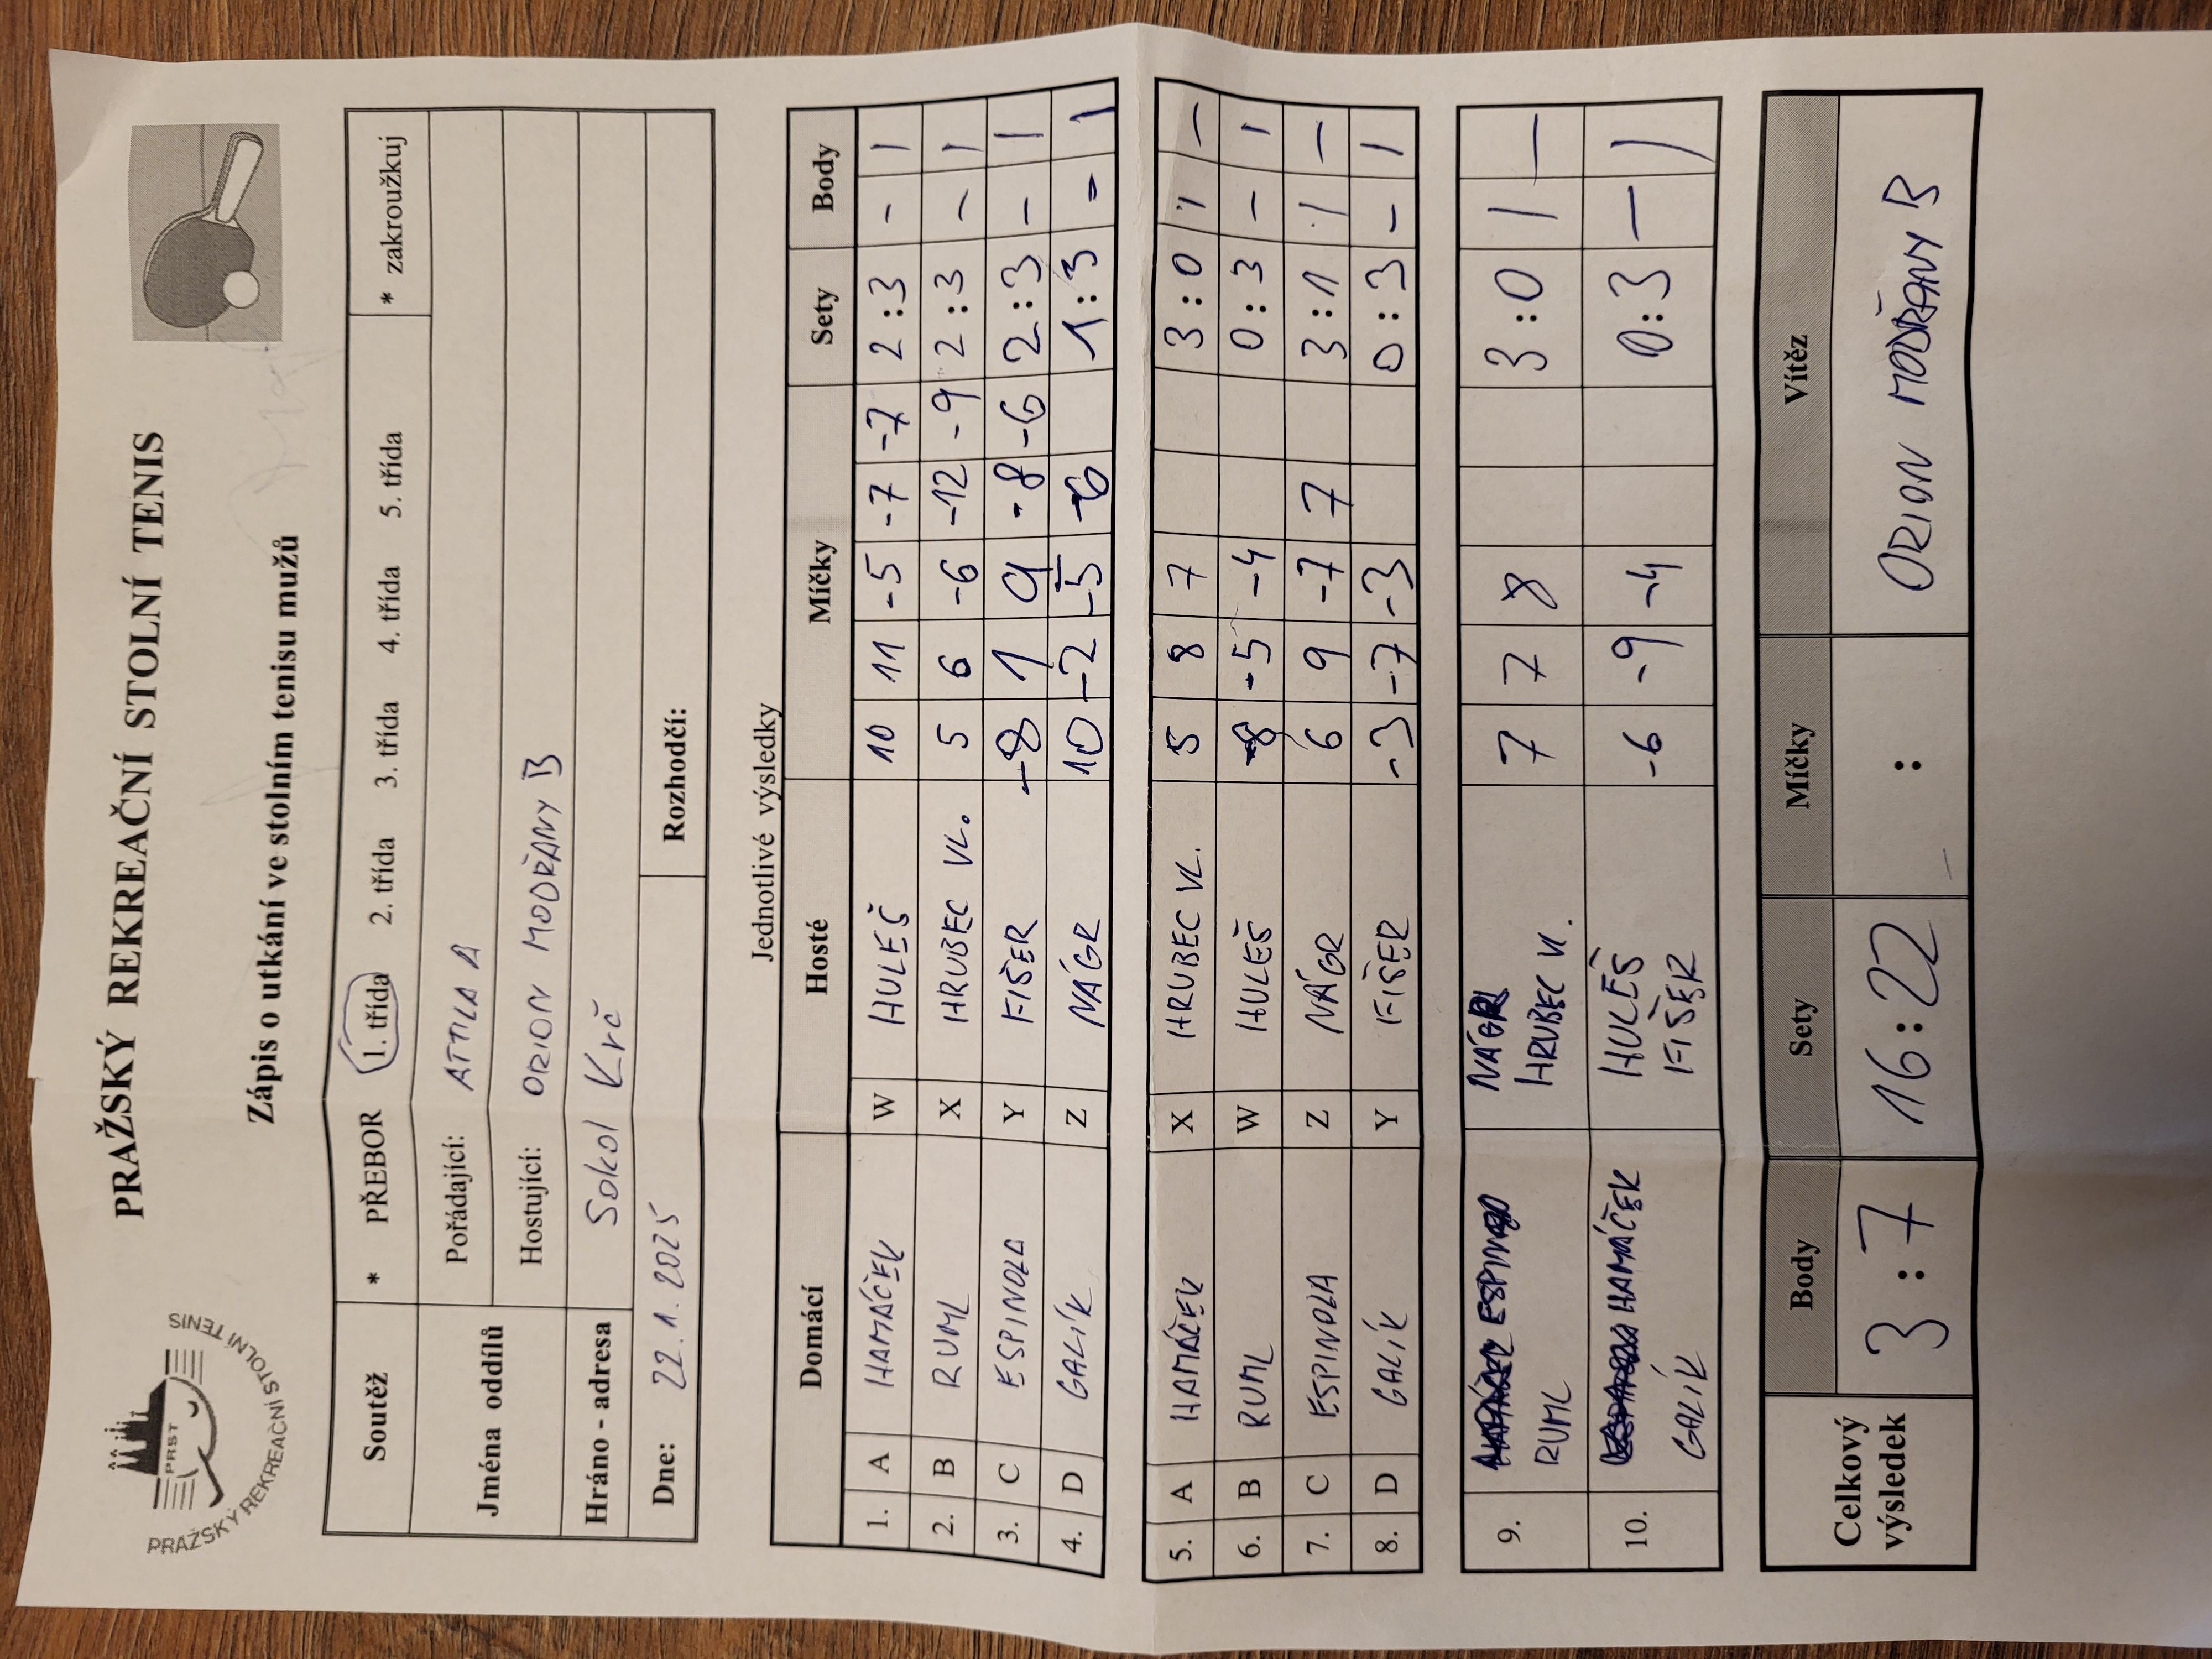 PRAŽSKÝ REKREAČNÍ STOLNÍ TENIS
PRST
PRAŽSKÝ REKREAČNÍ STOLNÍ TENIS
Zápis o utkání ve stolním tenisu mužů
Soutěž * PŘEBOR 1. třída 2. třída 3. třída 4. třída 5. třída * zakroužkuj
Jména oddílů Pořádající: ATTILA A
Hostující: ORION MODŘANY B
Hráno - adresa Sokol Krč
Dne: 22.1.2025 Rozhodčí:
Jednotlivé výsledky
Domácí Hosté Míčky Sety Body
1. A HAMÁČEK W HULEŠ 10 11 -5 -7 -7 2:3 – 1
2. B RUML X HRUBEC VL. 5 6 -6 -12 -9 2:3 – 1
3. C ESPINOLA Y FIŠER -8 1 9 -8 -6 2:3 – 1
4. D GALÍK Z NÁGR 10 -2 -5 -6 1:3 – 1
5. A HAMÁČEK X HRUBEC VL. 5 8 7 3:0 1 –
6. B RUML W HULEŠ -8 -5 -4 0:3 – 1
7. C ESPINOLA Z NÁGR 6 9 -7 7 3:1 1 –
8. D GALÍK Y FIŠER -3 -7 -3 0:3 – 1
9. ESPINO NÁGR 7 7 8 3:0 1 –
RUML HRUBEC Vl.
10. HAMÁČEK HULEŠ -6 -9 -4 0:3 – 1
GALÍK FIŠER
Celkový výsledek Body Sety Míčky Vítěz
3:7 16:22 : ORION MODŘANY B